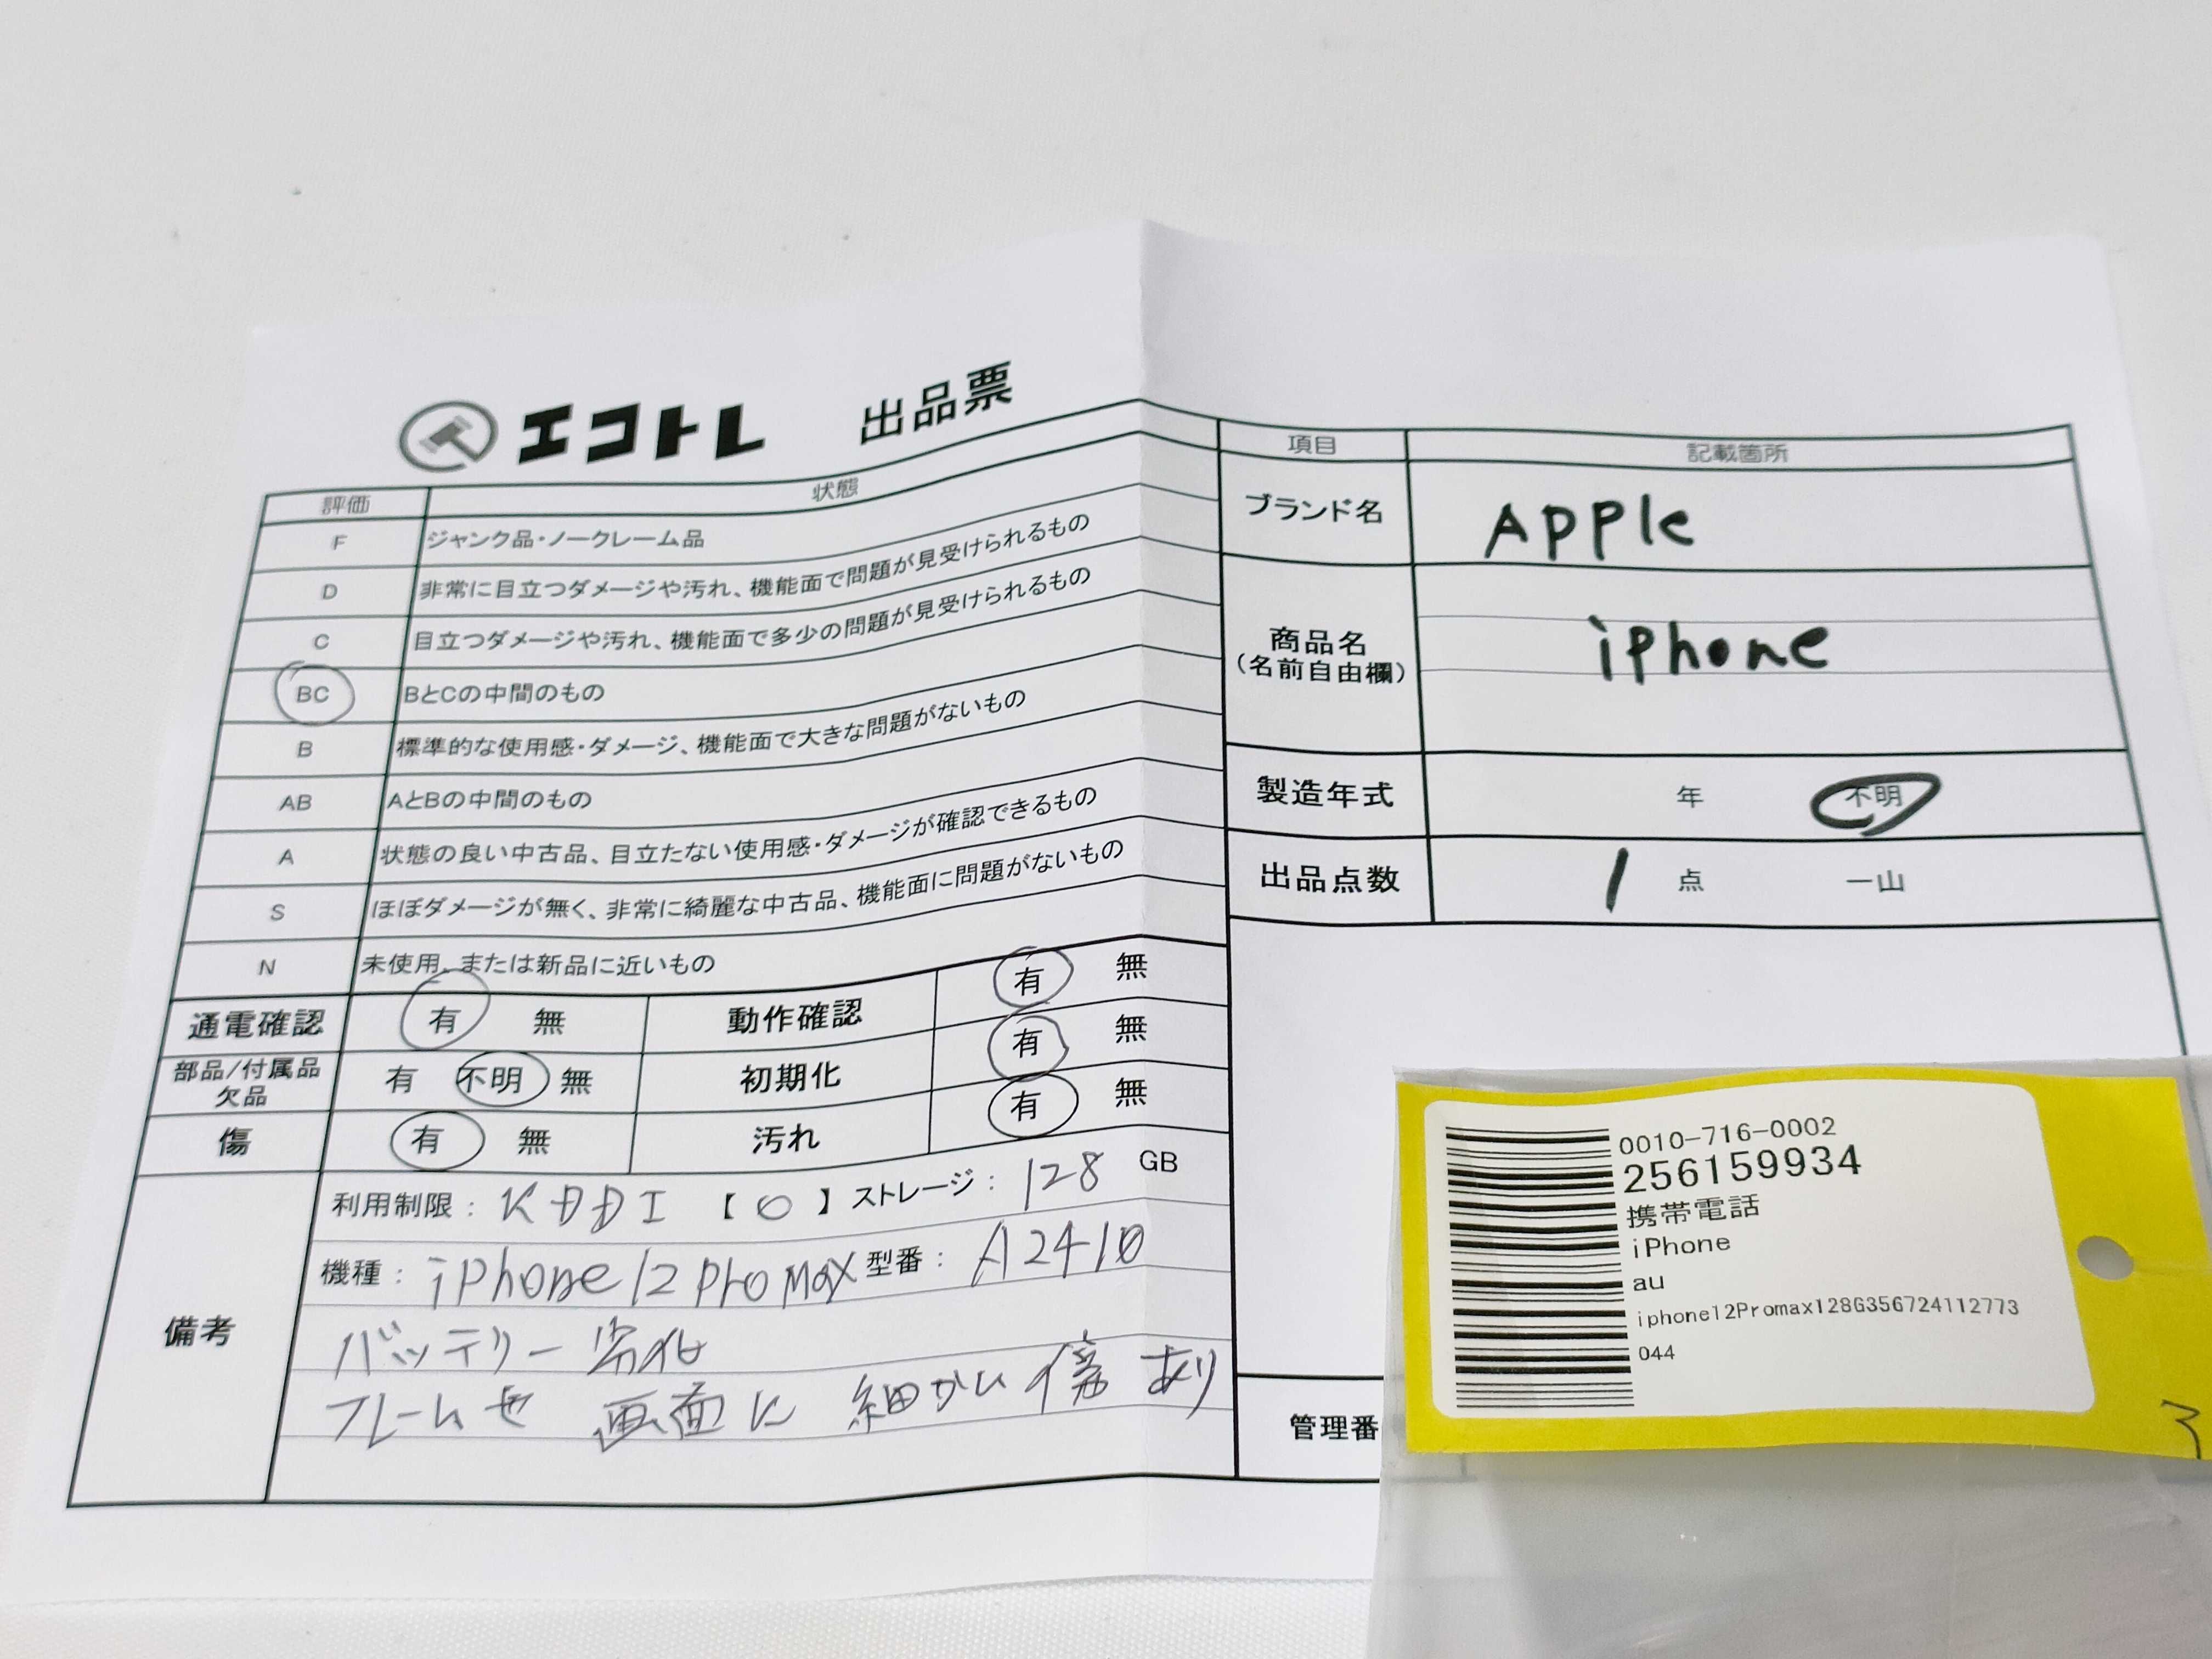 エコトレ 出品票
評価 状態
F ジャンク品・ノークレーム品
D 非常に目立つダメージや汚れ、機能面で問題が見受けられるもの
C 目立つダメージや汚れ、機能面で多少の問題が見受けられるもの
BC BとCの中間のもの
B 標準的な使用感・ダメージ、機能面で大きな問題がないもの
AB AとBの中間のもの
A 状態の良い中古品、目立たない使用感・ダメージが確認できるもの
S ほぼダメージが無く、非常に綺麗な中古品、機能面に問題がないもの
N 未使用、または新品に近いもの
通電確認 有 無 動作確認 有 無
部品/付属品
欠品 有 不明 無 初期化 有 無
傷 有 無 汚れ 有 無
備考
利用制限: KDDI 【○】 ストレージ: 128 GB
機種: iPhone12 Pro Max 型番: A2410
バッテリー劣化
フレームや 画面に 細かい傷 あり
項目 記載箇所
ブランド名 Apple
商品名
(名前自由欄) iphone
製造年式 年 不明
出品点数 1 点 一山
管理番
0010-716-0002
256159934
携帯電話
iPhone
au
iphone12Promax128G356724112773
044
3